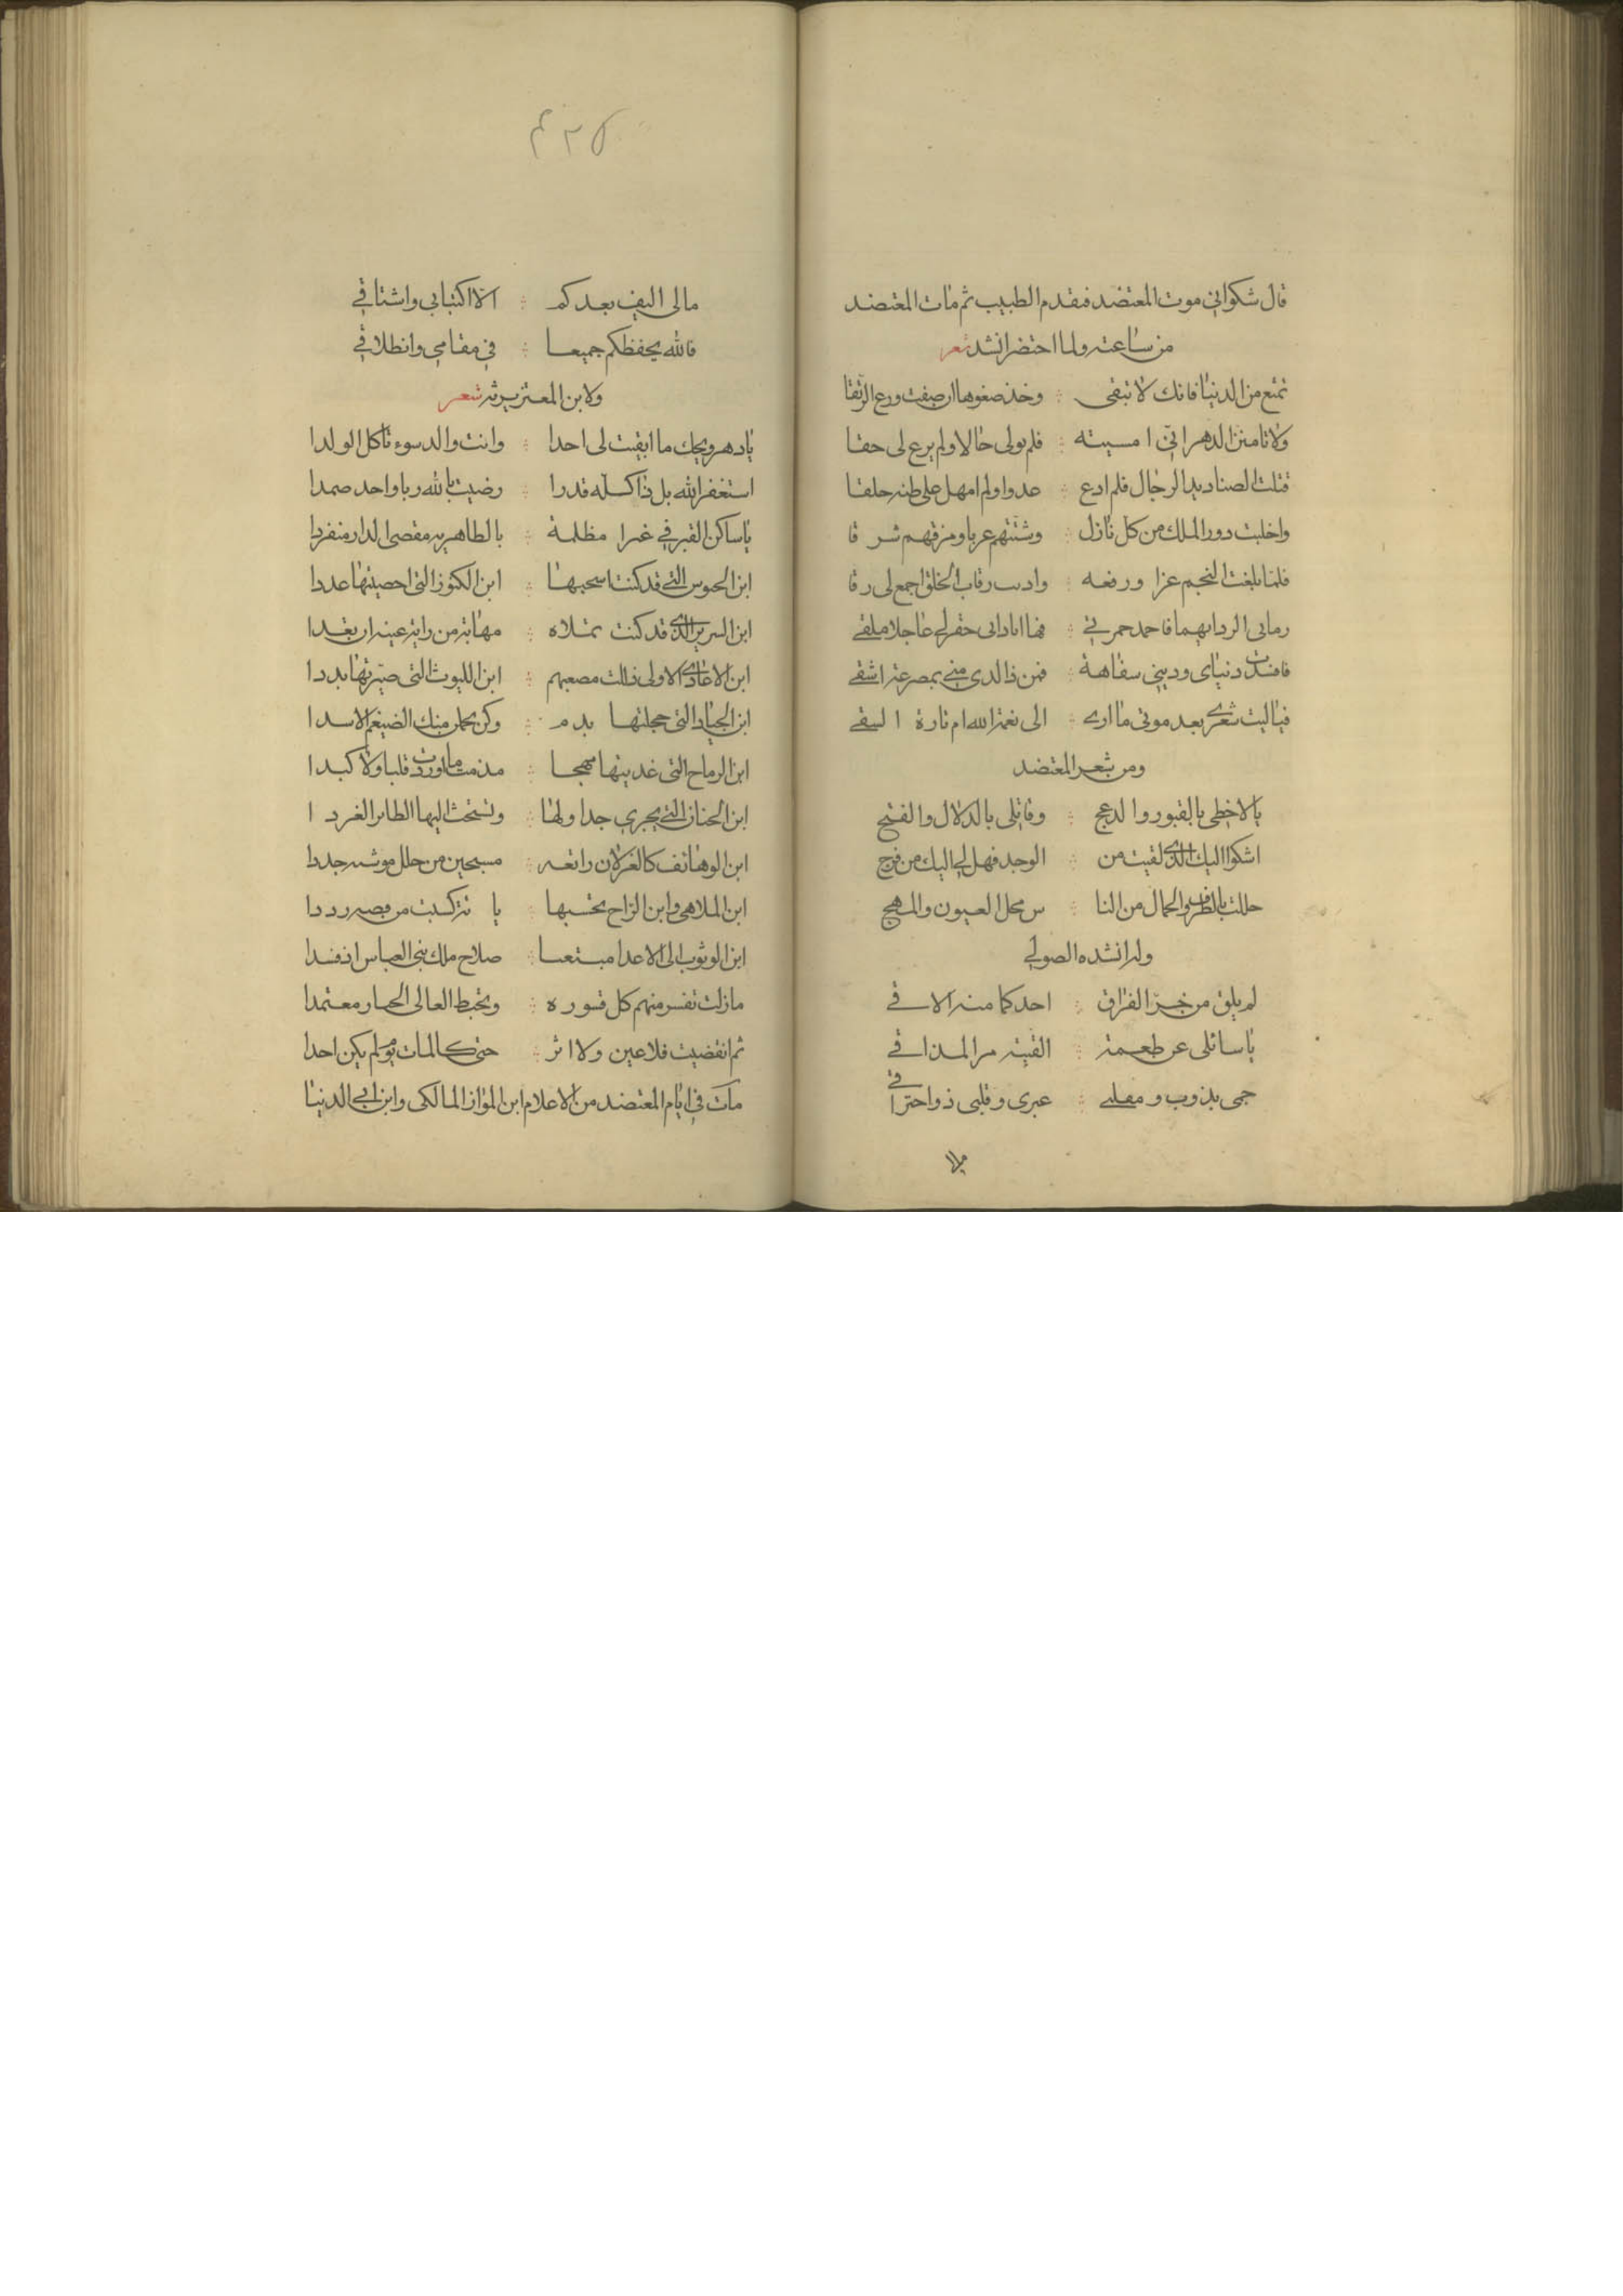 قال شكوا في موت المعتضد فتقدم الطبيب ثم مات المعتضد
من ساعته ولما احتضر انشد شعر
تمتع من الدنيا فانك لا تبقى وخذ صفوها ان صفت ودع الرنقا
ولا تامنن الدهر اني امسيته فلم يولى حالا ولم يرع لى حقا
قتلت الصناديد الرجال فلم ادع عدوا ولم امهل على طنه خلقا
واخليت دور الملك من كل نازل وشتتهم غربا ومزقهم شرقا
فلما بلغت النجم عزا ورفعه ودات رقاب الخلق اجمع لى رقا
رمانى الردا سهما فاخمد جمرتي فها انا ذا فى حفرتي عاجلا ملقى
فافسدت دنياى وديني سفاهة فمن ذا الذى مني بمصرعه اشقى
فياليت شعري بعد موتى ما ارى الى نعمة الله ام ناره القى
ومن شعر المعتضد
يا لاحظى بالفتور والدعج وقاتلى بالدلال والغنج
اشكوا اليك الذى لقيت من الوجد فهل لي اليك من فرج
حللت بالظرف والجمال من النا س محل العيون والمهج
وله انشده الصولي
لم يلق من حر الفراق احد كما منه الاقي
يا سائلى عن طعمه الفيته مر المذاقي
جسمى يذوب ومقلتي عبرى وقلبى ذو احتراقي
مالا
٤٢٥
مالى اليف بعدكم الا اكتئابى واشتاقي
فالله يحفظكم جميعا في مقامي وانطلاقي
ولابن المعتز يرثيه شعر
يا دهر ويحك ما ابقيت لى احدا وانت والد سوء تاكل الولدا
استغفر الله بل ذا كله قدرا رضيت بالله ربا واحد صمدا
يا ساكن القبر في غبرا مظلمة بالطاهريه مقصى الدار منفردا
اين الجيوش التي قد كنت تسحبها اين الكنوز التي احصيتها عددا
اين السرير الذى قد كنت تملاه مهابة من راته عينه ارتعدا
اين الاعادي الاولى ذللت مصعبهم اين الليوث التى صيرتها بددا
اين الجياد التى حجلتها بدم وكن يحملن منك الضيغم الاسدا
اين الرماح التى غديتها مهجا مذ مت ما وردت قلبا ولا كبدا
اين الجنان التي يجري جداولها وتستحث اليها الطائر الغردا
اين الوصائف كالغزلان رائعه يسحبن من حلل موشيه جددا
اين الملاهي واين الراح تحسبها يا
اين الوثوب الى الاعدا مبتغيا صلاح ملك بنى العباس اذ فسدا
ما زلت تقسر منهم كل قسوره وتخبط العالى الجبار معتمدا
ثم انقضيت فلا عين ولا اثر حتى كانك يوما لم يكن احدا
مات في ايام المعتضد من الاعلام ابن المواز المالكى وابن ابي الدنيا